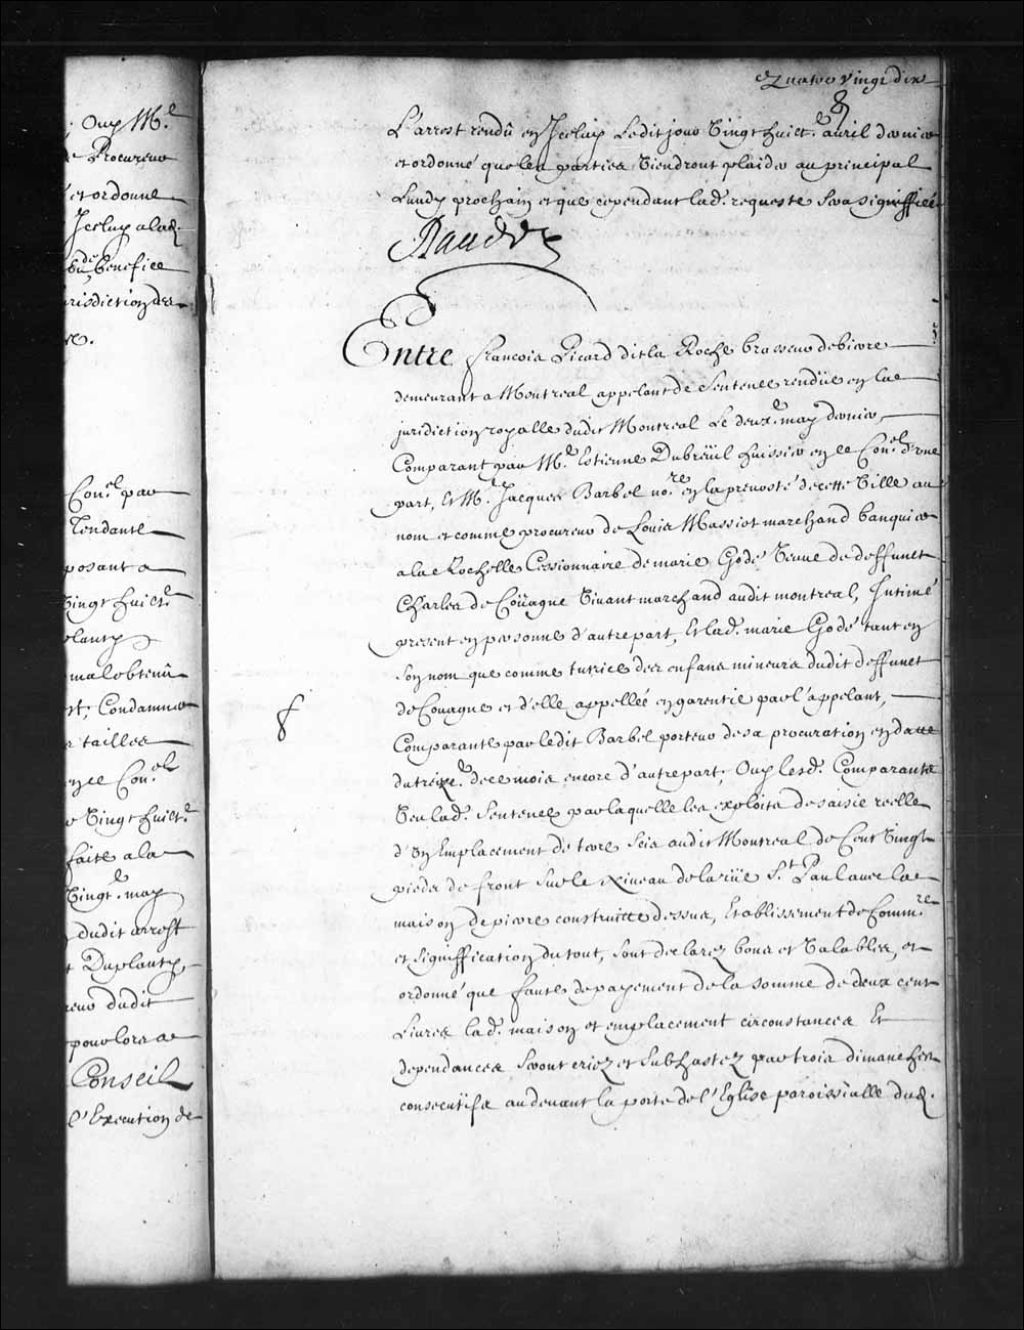 Ouy M.e
Procureur
et ordonne
Jceluy a lad.
Benefice
jurisdiction des
Con.el par
Tendante
posant a
Vingt huict.e
plantÿ
mal obtenü
Condamner
tailles
en ce Con.el
Vingt huict.e
faite a la
Vingt.e may
dudit arrest
Duplantÿ
dudit
pour lors a
Conseil
l'Execution de
Quatre Vingt dix
8
L'arrest rendû en Jceluy Ledit jour Vingt huict.e auril dernier
et ordonné que les parties Viendront plaider au principal
Lundy prochain et que cependant lad. requeste sera signiffiée
Raudot
Entre francois Picard dit la Roche brasseur de biere
demeurant a Montreal appelant de Sentence rendüe en la
juridiction royalle dudit Montreal Le deux.e may dernier,
Comparant par M.e Estienne Dubreüil huissier en ce Con.el d'vne
part, Et M.e Jacques Barbel no.re en la preuosté de cette Ville au
nom et comme procureur de Louis Massiot marchand banquier
a la Rochelle Cessionnaire de marie Godé Veuue de deffunct
Charles de Coüagne Viuant marchand audit montreal, Jntimé
present en personne d'autre part, Et lad. marie Godé tant en
son nom que comme tutrice des enfans mineurs dudit deffunct
de Couagne et d'elle appellée en garentie par l'appelant,
Comparante par ledit Barbel porteur de sa procuration en datte
du treize.e de ce mois encore d'autre part; Ouy lesd. Comparants
Veu lad. Sentence par laquelle les exploits de saisie reelle
d'Vn Emplacement de terre scis audit Montreal de Cent Vingt
pieds de front sur le niueau de la rüe S.t Paul auec la
maison de pierre construitte dessus, Establissement de Comm.re
et signiffication du tout, sont declarez bons et Valables, et
ordonné que faute de payement de la somme de deux cent
Liures lad. maison et emplacement circonstances Et
dependances seront criez et subhastez par trois dimanches
consecutifs au deuant la porte de l'Eglise paroissialle dud.